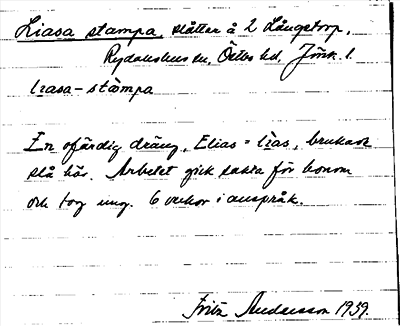 Liasa stampa, slåtter å 2 Långstorp,
Rydaholms sn, Östbo hd, Jönk. l.
liasa-stampa
En ofärdig dräng, Elias = lias, brukade
slå här. Arbetet gick sakta för honom
och tog ung. 6 veckor i anspråk.
Fritz Andersson 1939.